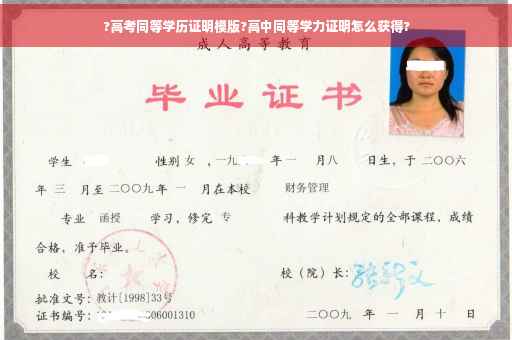 ?高考同等学历证明模版?高中同等学力证明怎么获得?
成人高等教育
毕业证书
学生 性别 女 ,一九 年 一 月八 日生,于 二〇〇六
年 三 月至 二〇〇九 年 一 月在本校 财务管理
专业 函授 学习,修完 专 科教学计划规定的全部课程,成绩
合格,准予毕业。
校 名: 校(院)长:
批准文号:教计[1998]33号
证书编号: 06001310 二〇〇九 年 一 月 十 日